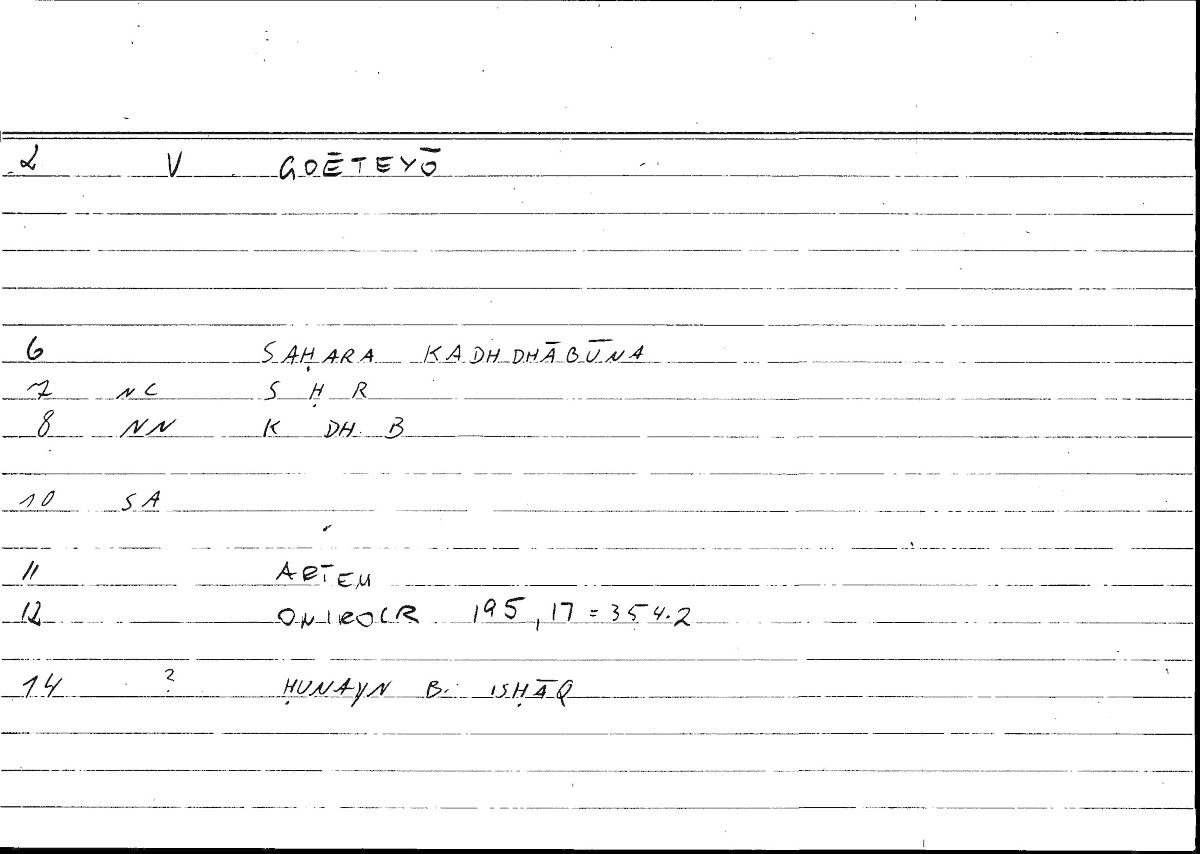 2 V GOĒTEYŌ
6 SAḤARA KADHDHĀBŪNA
7 NC S Ḥ R
8 NN K DH B
10 SA
11 ARTEM
12 ONIROCR 195,17=354.2
14 ? ḤUNAYN B. ISḤĀQ